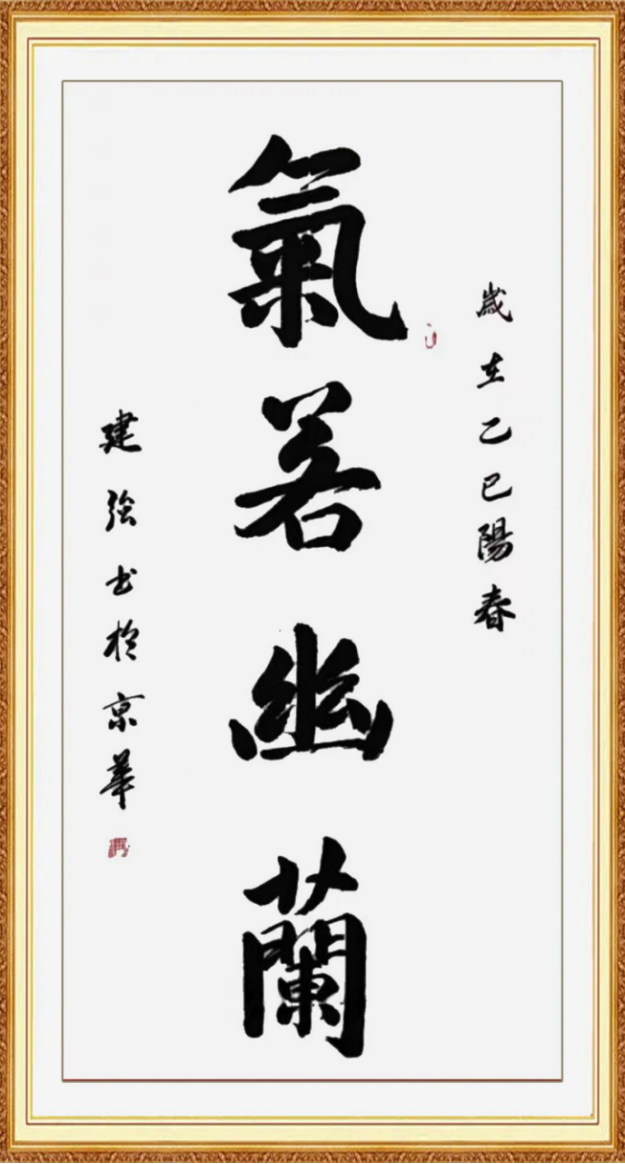 歲在乙巳陽春
氣若幽蘭
建強书於京華